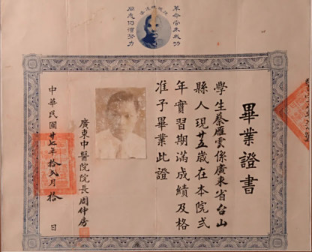 革命尚未成功
同志仍須努力
畢業證書
學生蔡雁雲係廣東省台山
縣人現廿五歲在本院弍
年實習期滿成績及格
准予畢業此證
廣東中醫院院長周仲房
中華民國廿七年拾弍月拾日